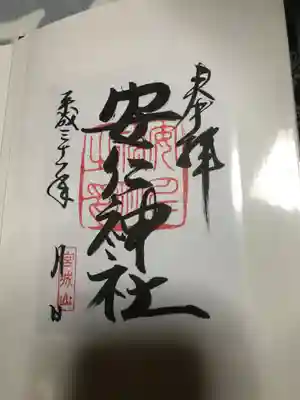 奉拝
安仁神社
平成三十一年 月 日
宮城山